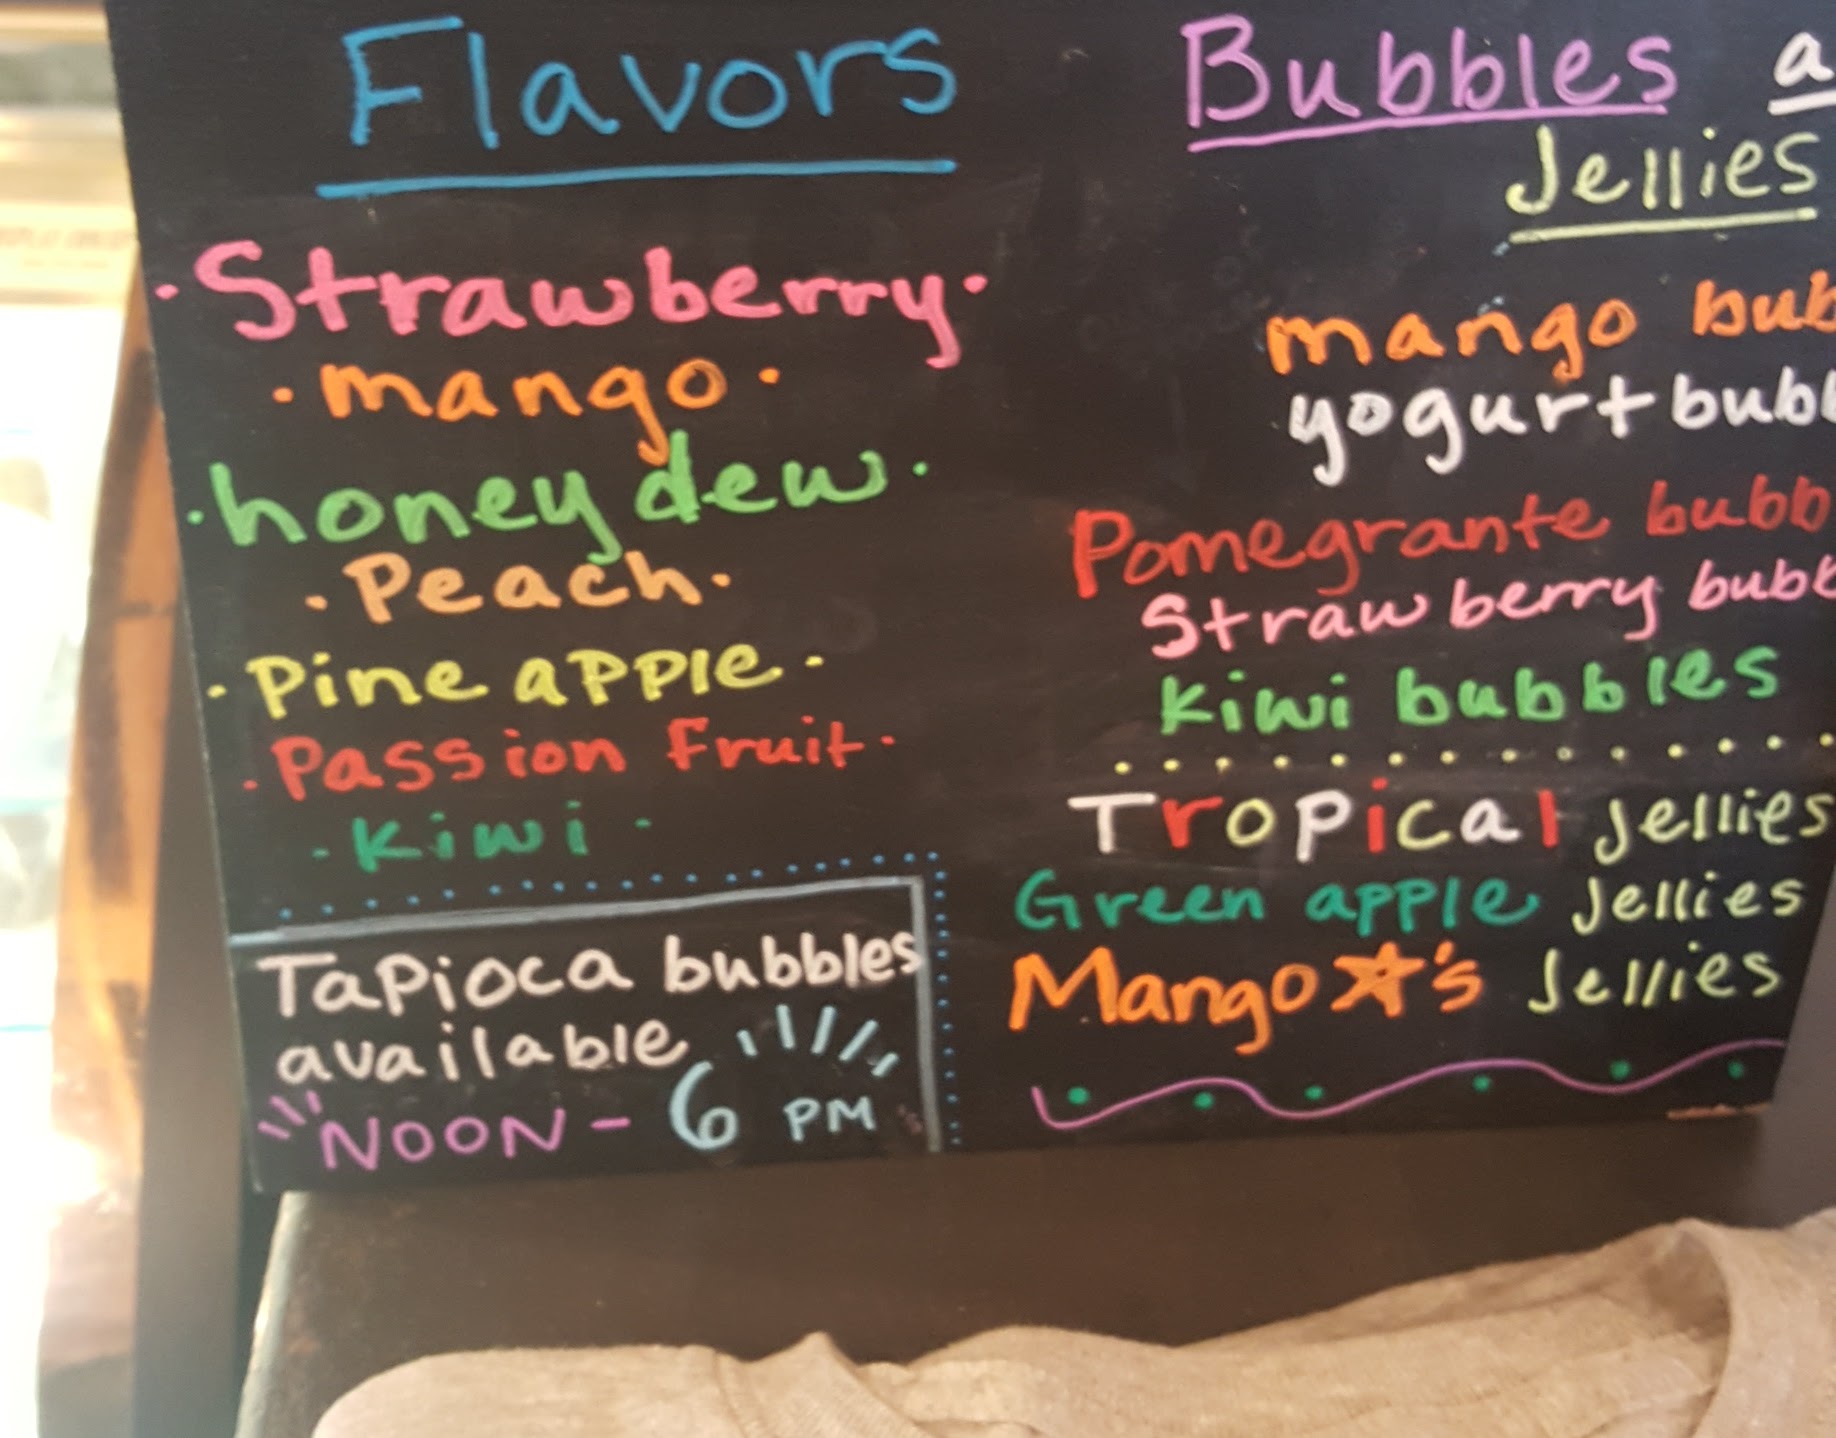 Flavors
·Strawberry·
·mango·
·honey dew·
·Peach·
·Pine apple·
·Passion Fruit·
·Kiwi·
Tapioca bubbles
available
NOON - 6 PM
Bubbles a
Jellies
mango bub
yogurt bubb
Pomegrante bubb
Strawberry bubb
Kiwi bubbles
Tropical Jellies
Green apple Jellies
Mango ★'s Jellies